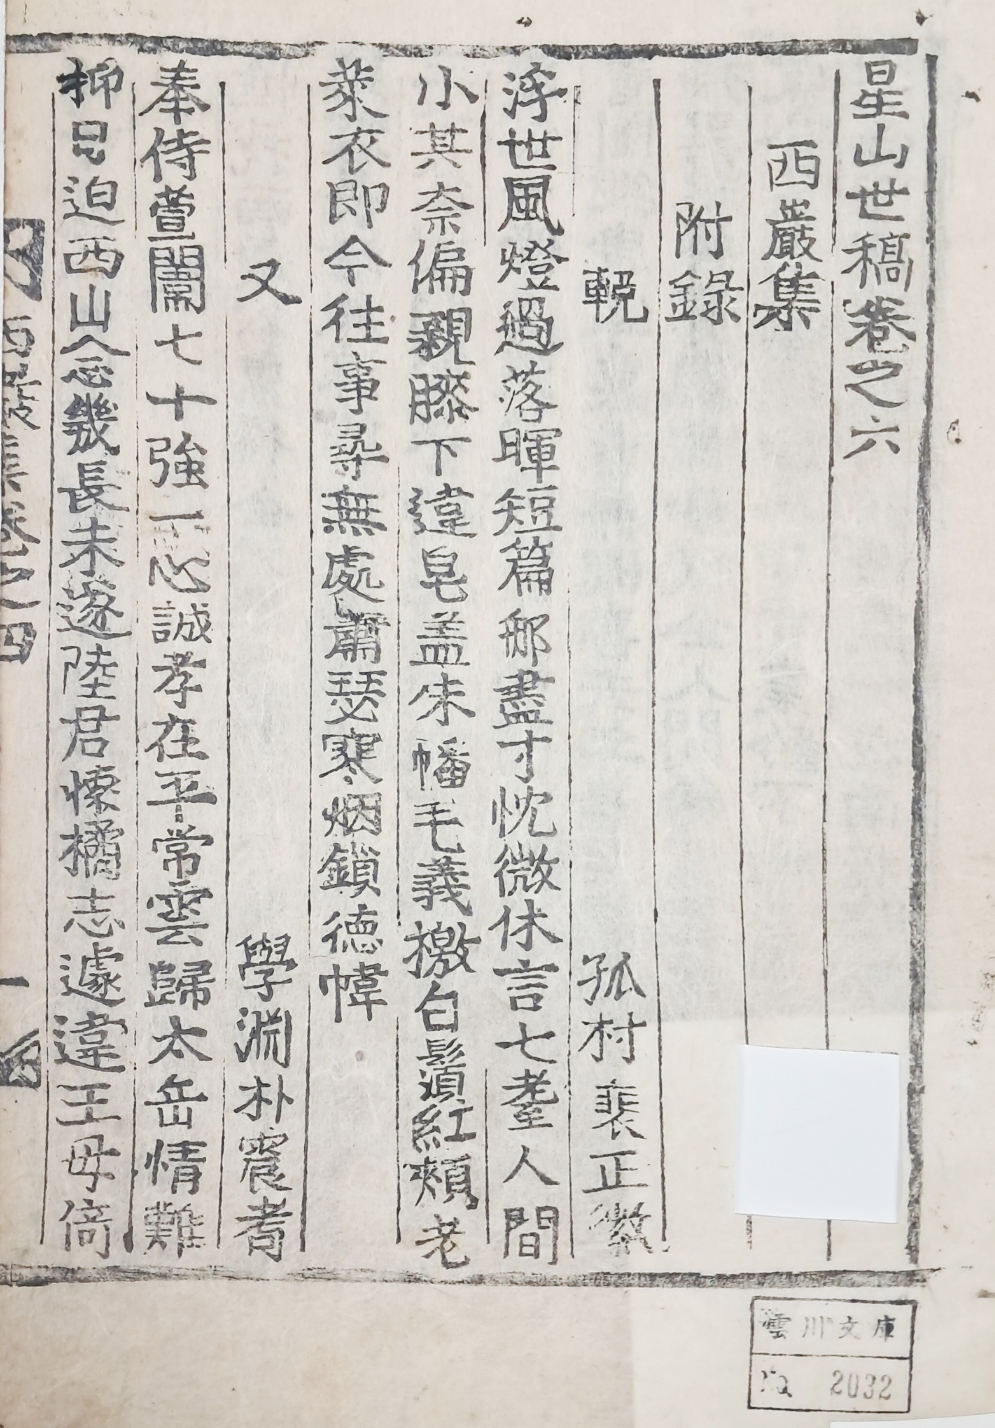 星山世稿卷之六
西巖集
附錄
輓
孤村裴正徽
浮世風燈過落暉短篇那盡寸忱微休言七耋人間
小其奈偏親膝下違皂盖朱幡毛義檄白鬚紅頰老
萊衣即今往事尋無處肅瑟寒烟鎖德幃
又
學淵朴震耉
奉侍萱闈七十強一心誠孝在平常雲歸太岳情難
抑日迫西山念幾長未遂陸君懷橘志遽違王母倚
西巖集卷之四
一
雲川文庫
No 2032